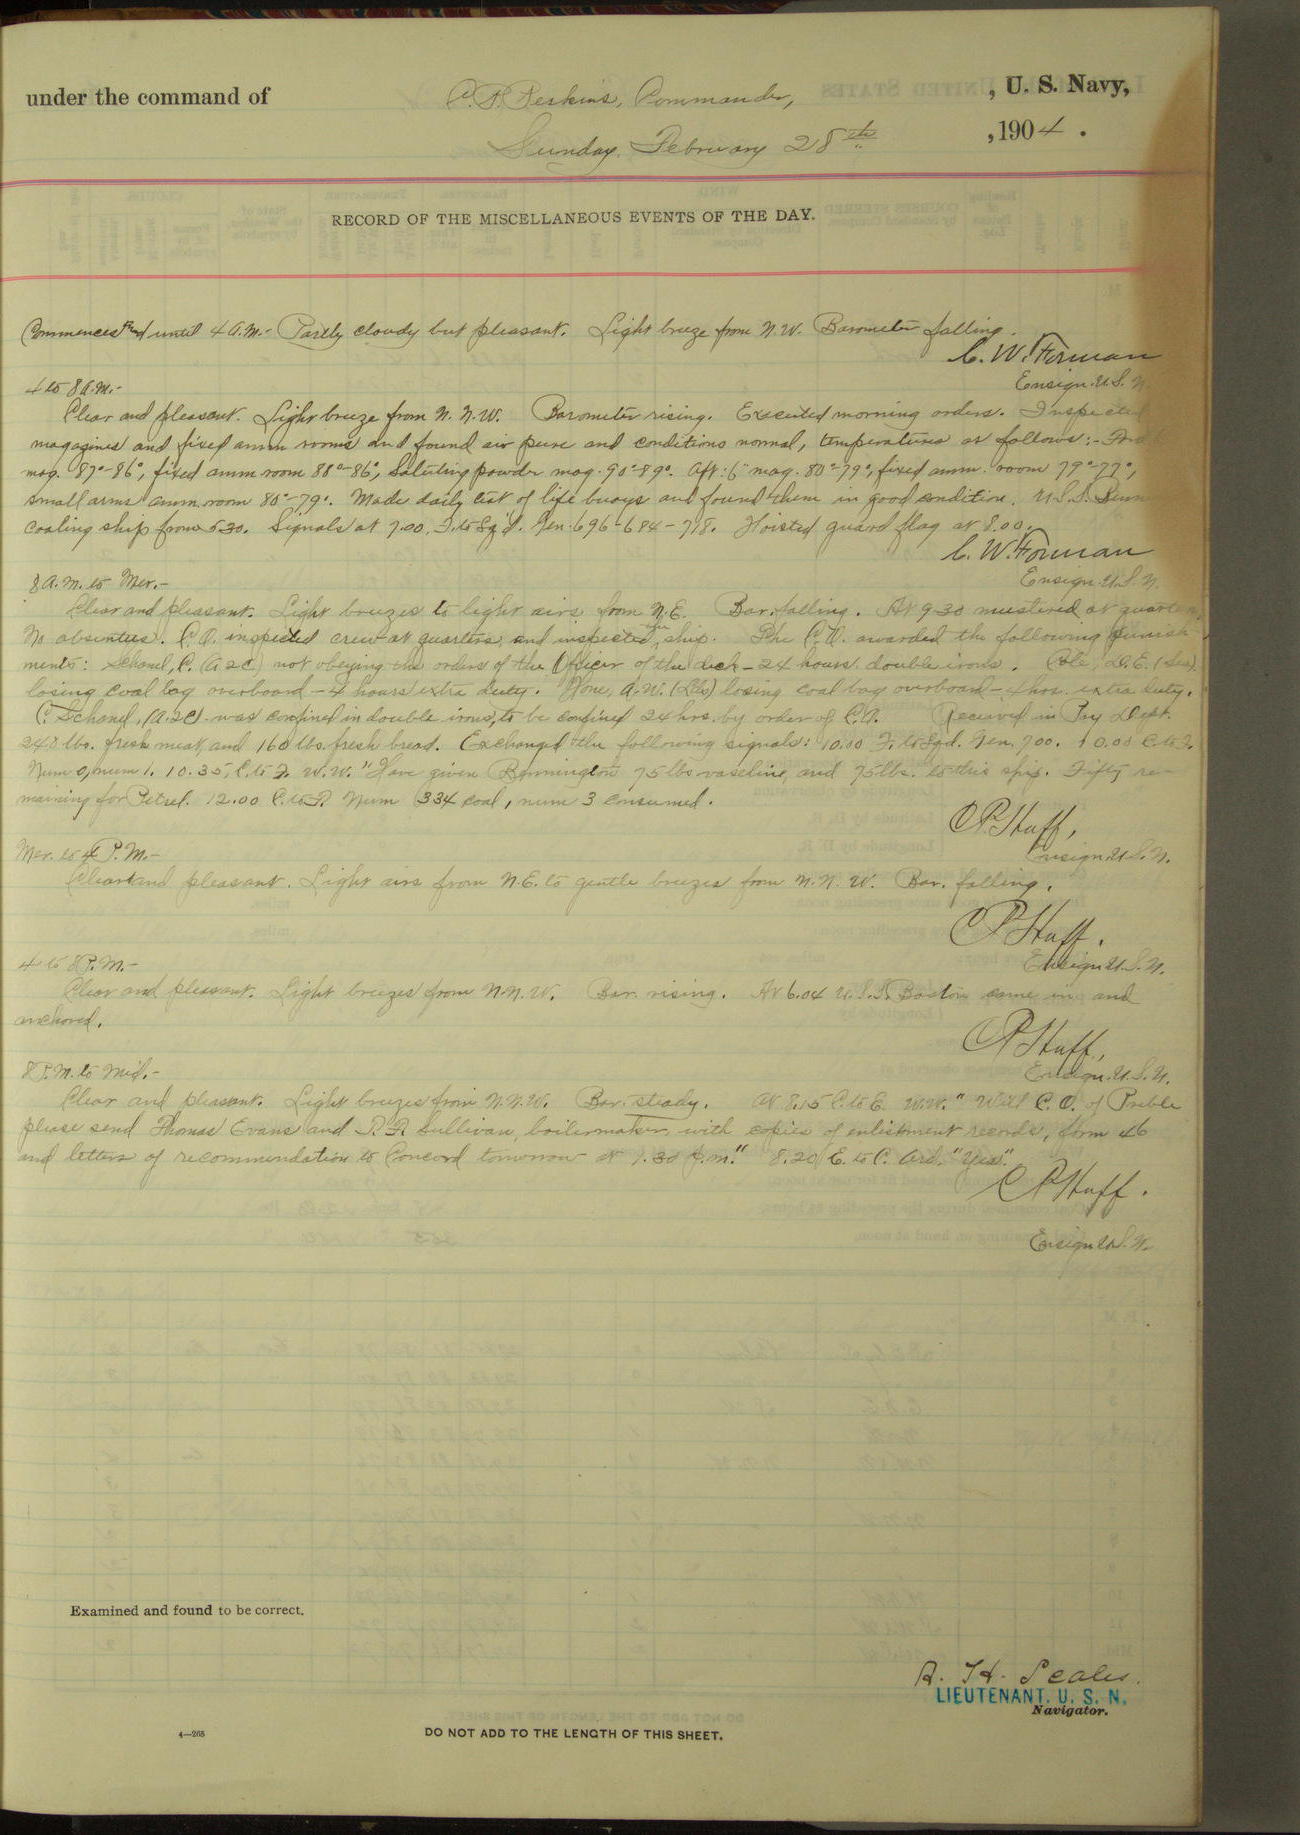 under the command of C. P. Perkins, Commander, , U. S. Navy,
Sunday, February 28th , 1904 .
RECORD OF THE MISCELLANEOUS EVENTS OF THE DAY.
Commences and until 4 A.M.- Partly cloudy but pleasant. Light breeze from N.W. Barometer falling.
C. W. Forman
Ensign U.S. N.
4 to 8 A.M.-
Clear and pleasant. Light breeze from N. N.W. Barometer rising. Executed morning orders. Inspected
magazines and fixed amm rooms and found air pure and conditions normal, temperatures as follows:-
mag. 87°-86°, fixed amm room 88°-86°, Saluting powder mag. 90°-89°. Aft: 6" mag. 80°-79°, fixed amm. room 79°-77°,
small arms amm. room 80°-79°. Made daily test of life buoys and found them in good condition. U.S.S.
coaling ship from 5.30. Signals at 7.00. F. to Sq'd. Gen. 696-684-718. Hoisted guard flag at 8.00.
C. W. Forman
Ensign U.S. N.
8 A.M. to Mer.-
Clear and pleasant. Light breezes to light airs from N.E. Bar. falling. At 9-30 mustered at quarters,
No absentees. C.O. inspected crew at quarters and inspected the ship. The C.O. awarded the following punish-
ments: Schanel, C. (A2C) not obeying the orders of the Officer of the deck - 24 hours double irons. Cole, D.E. (Sea)
losing coal bag overboard - 4 hours extra duty. Hone, A.W. (Lds) losing coal bag overboard - 4 hrs. extra duty.
C. Schanel, (A.2C) was confined in double irons, to be confined 24 hrs. by order of C.O. Received in Pay Dept.
248 lbs. fresh meat and 160 lbs. fresh bread. Exchanged the following signals: 10.00 F. to Sqd. Gen. 700. 10.00 C. to F.
Num 0, num 1. 10.35 C. to F. W.W. "Have given Bennington 75 lbs vaseline and 75 lbs. to this ship. Fifty re-
maining for Petrel. 12.00 C. to F. Num 334 coal, num 3 consumed.
C P Huff,
Ensign U.S.N.
Mer. to 4 P.M.-
Clear and pleasant. Light airs from N.E. to gentle breezes from N. N. W. Bar. falling.
C P Huff.
Ensign U.S.N.
4 to 8 P.M.-
Clear and pleasant. Light breezes from N.N.W. Bar. rising. At 6.04 U.S.S. Boston came in and
anchored.
C P Huff,
Ensign U.S.N.
8 P.M. to Mid.-
Clear and pleasant. Light breezes from N.N.W. Bar. steady. At 8.15 C. to E. W.W. "Will C.O. of Preble
please send Thomas Evans and Sullivan, boilermaker, with copies of enlistment records, form 46
and letters of recommendation to Concord tomorrow at 1.30 p.m." 8.20 E. to C. Ard. "Yes".
C P Huff.
Ensign U.S.N.
Examined and found to be correct.
A. H. Scales.
LIEUTENANT. U. S. N.
Navigator.
4—268
DO NOT ADD TO THE LENGTH OF THIS SHEET.